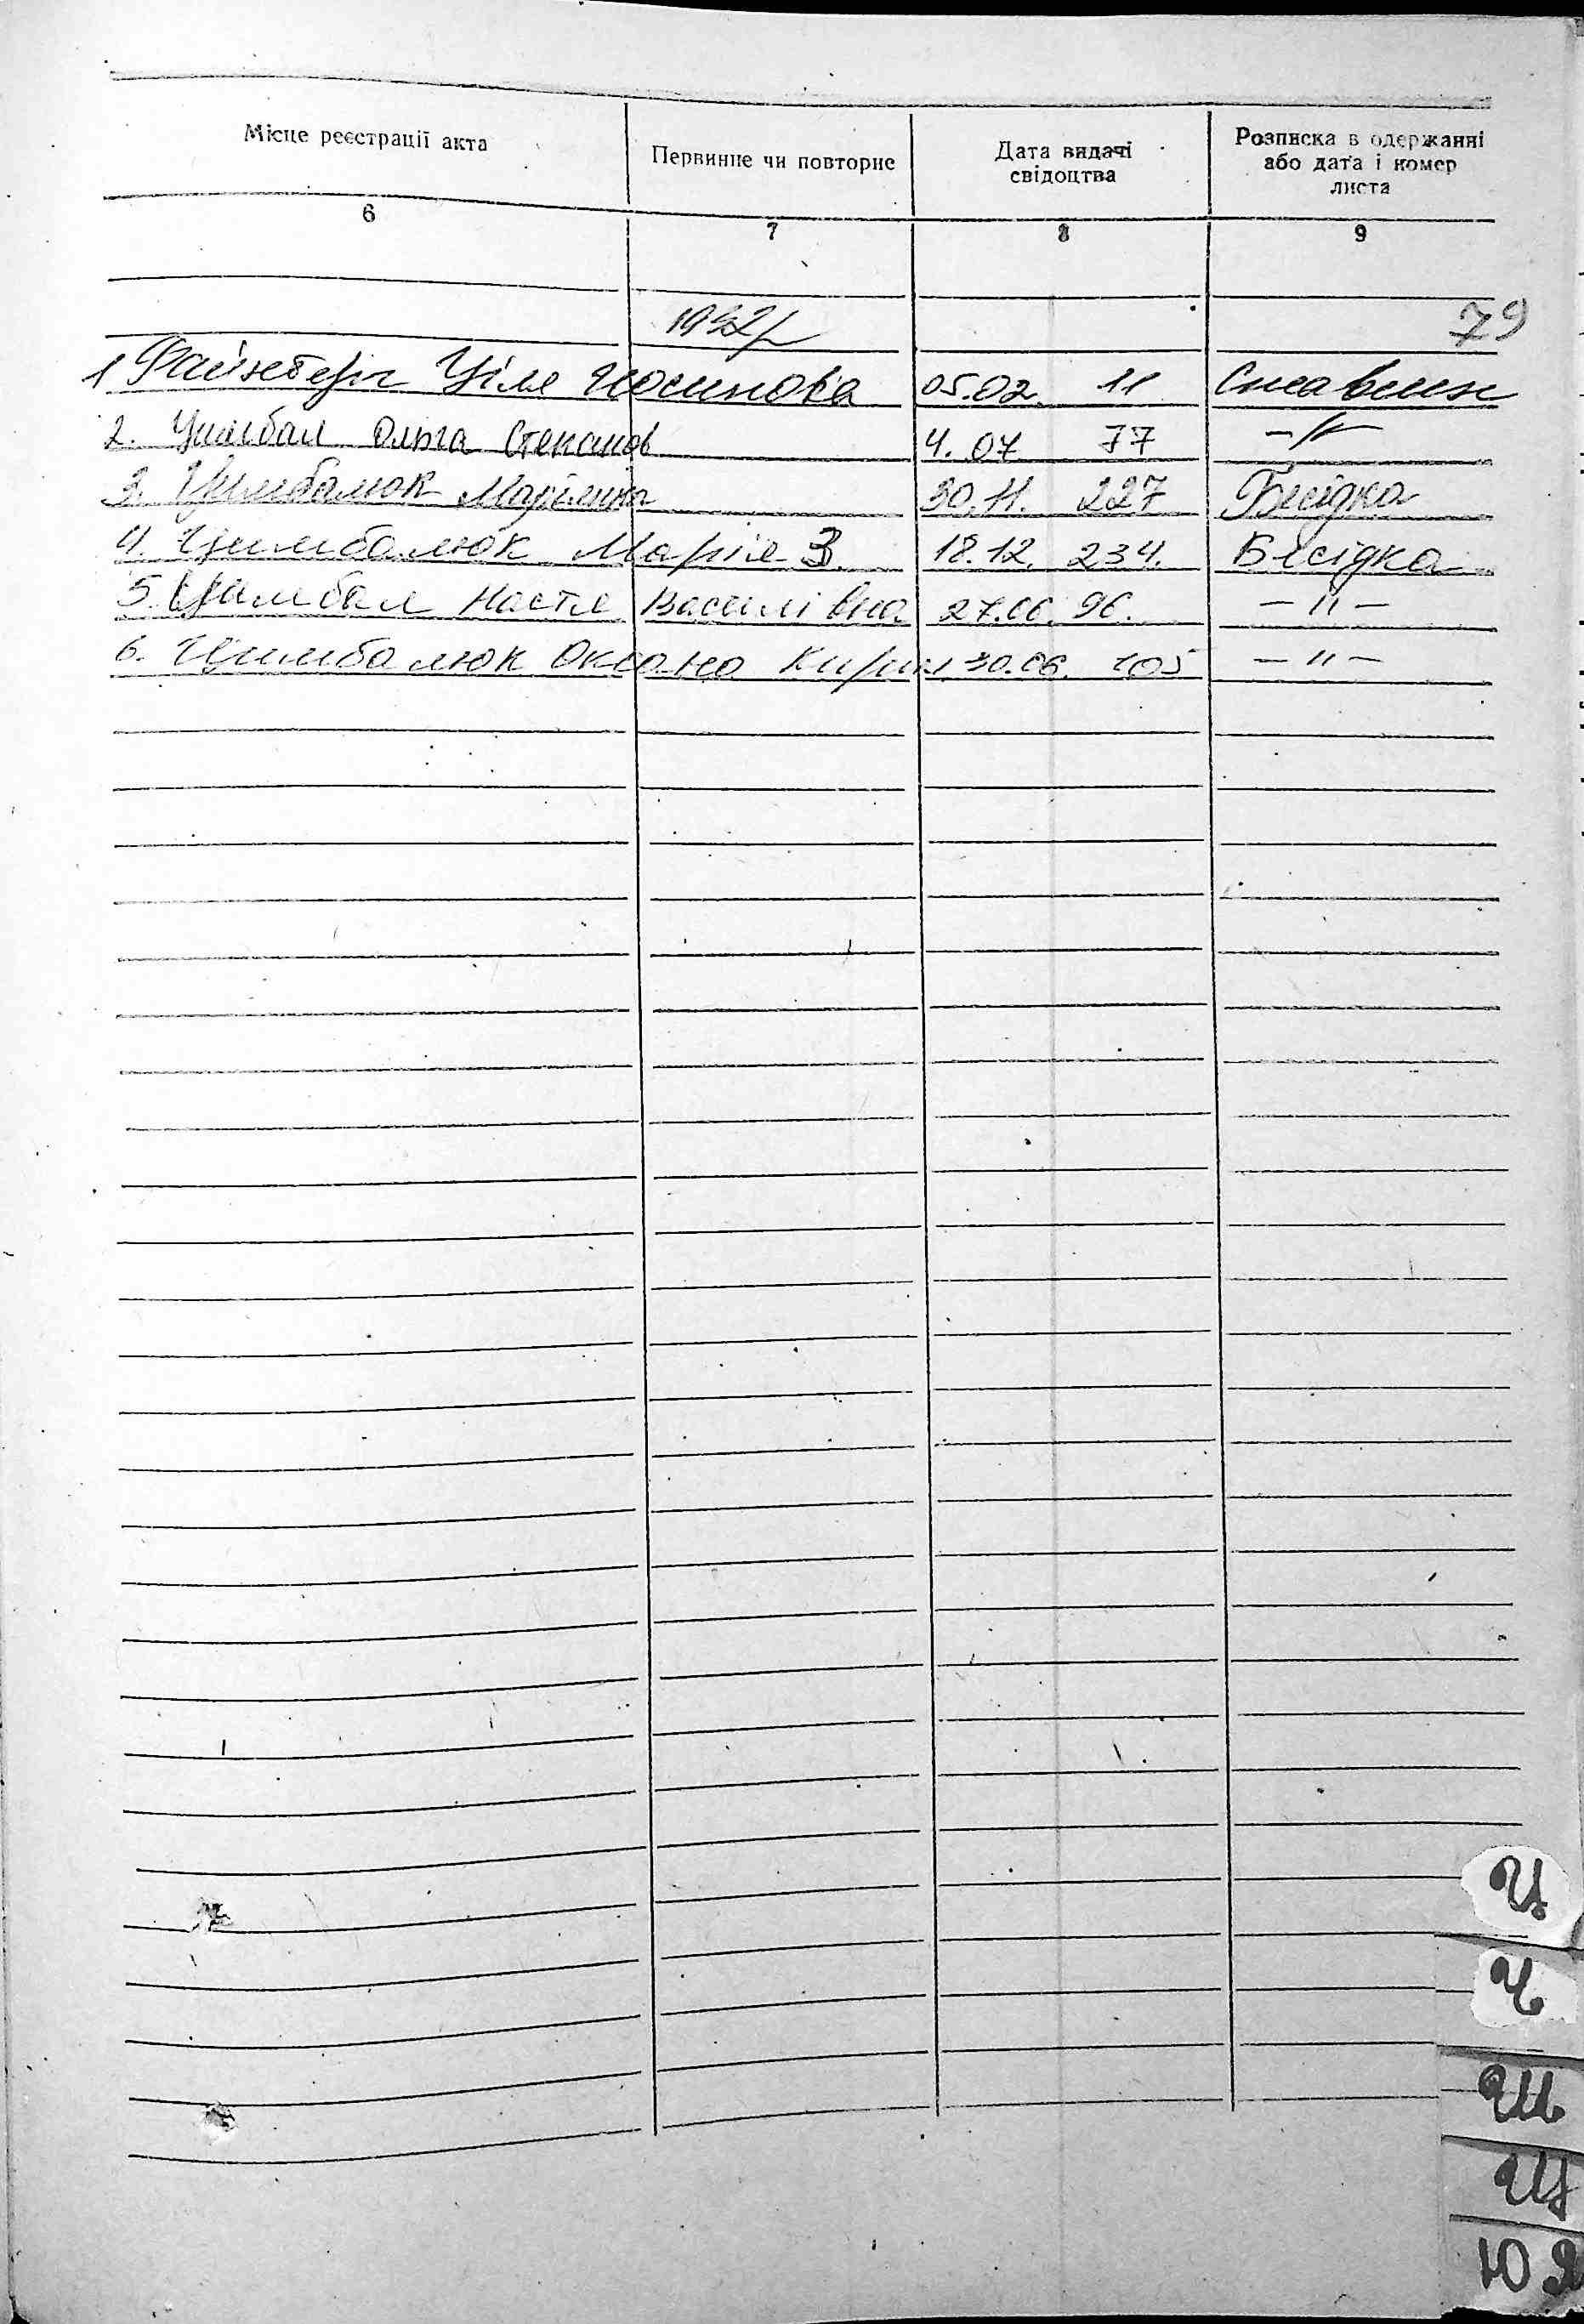 Місце реєстрації акта
Первинне чи повторне
Дата видачі свідоцтва
Розписка в одержанні або дата і номер листа
6 7 8 9
1932р
79
1 Файнберг Ціля Йосипова 05.02. 11
2. Цимбал Ольга Степанов 4.07 77 -//-
3. Цимбалюк 30.11. 227 Бесідка
4. Цимбалюк Марія З 18.12. 234. Бесідка
5. Цимбал Настя Василівна 27.06. 96. - " -
6. Цимбалюк Оксана Кирил 30.06. 105 - " -
Ц
Ч
Ш
Щ
Ю Я